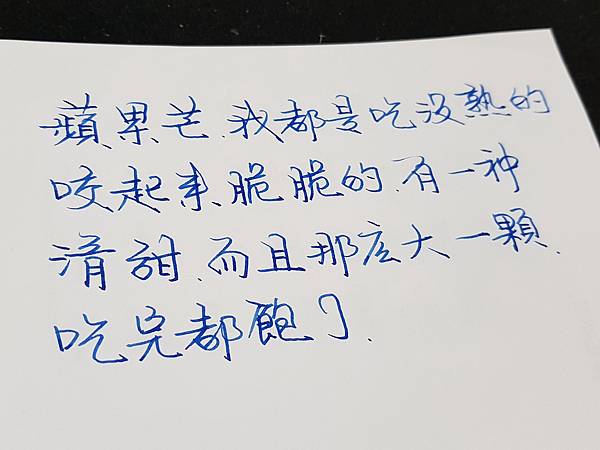 蘋果芒.我都是吃沒熟的
咬起來脆脆的.有一种
清甜.而且那庅大一顆.
吃完都飽了.